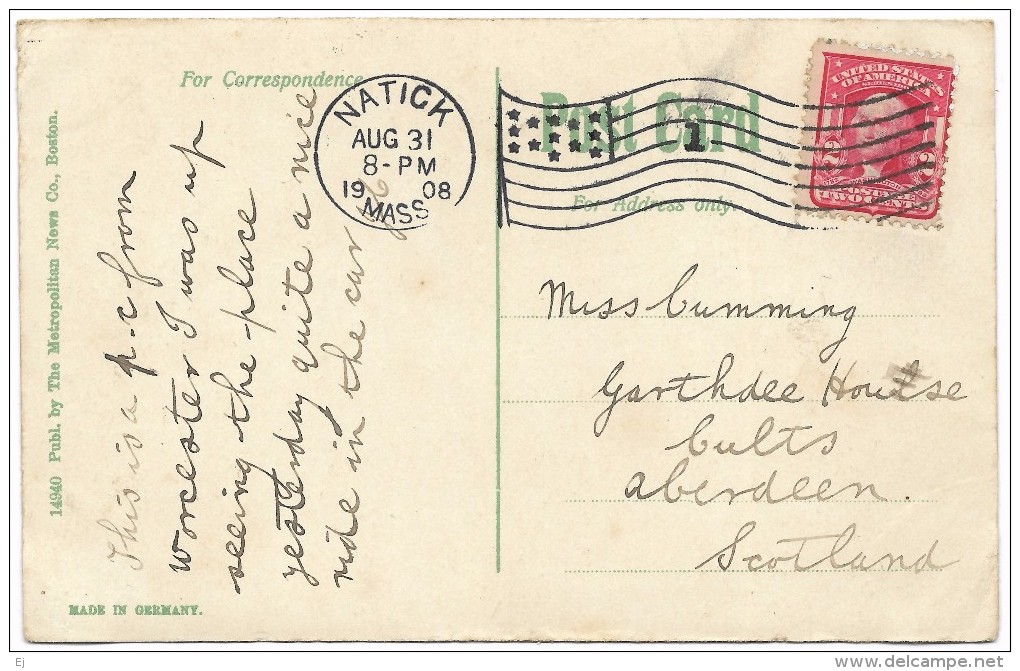 For Correspondence
NATICK
AUG 31
8-PM
1908
MASS
1
Post Card
For Address only.
UNITED STATES
OF AMERICA
2 2
POSTAGE
TWO CENTS
This is a p-c from
Worcester I was up
seeing the place
yesterday quite a nice
ride in the car
Miss Cumming
Garthdee House
Cults
Aberdeen.
Scotland
14940 Publ. by The Metropolitan News Co., Boston.
MADE IN GERMANY.
Ej
delcampe.net